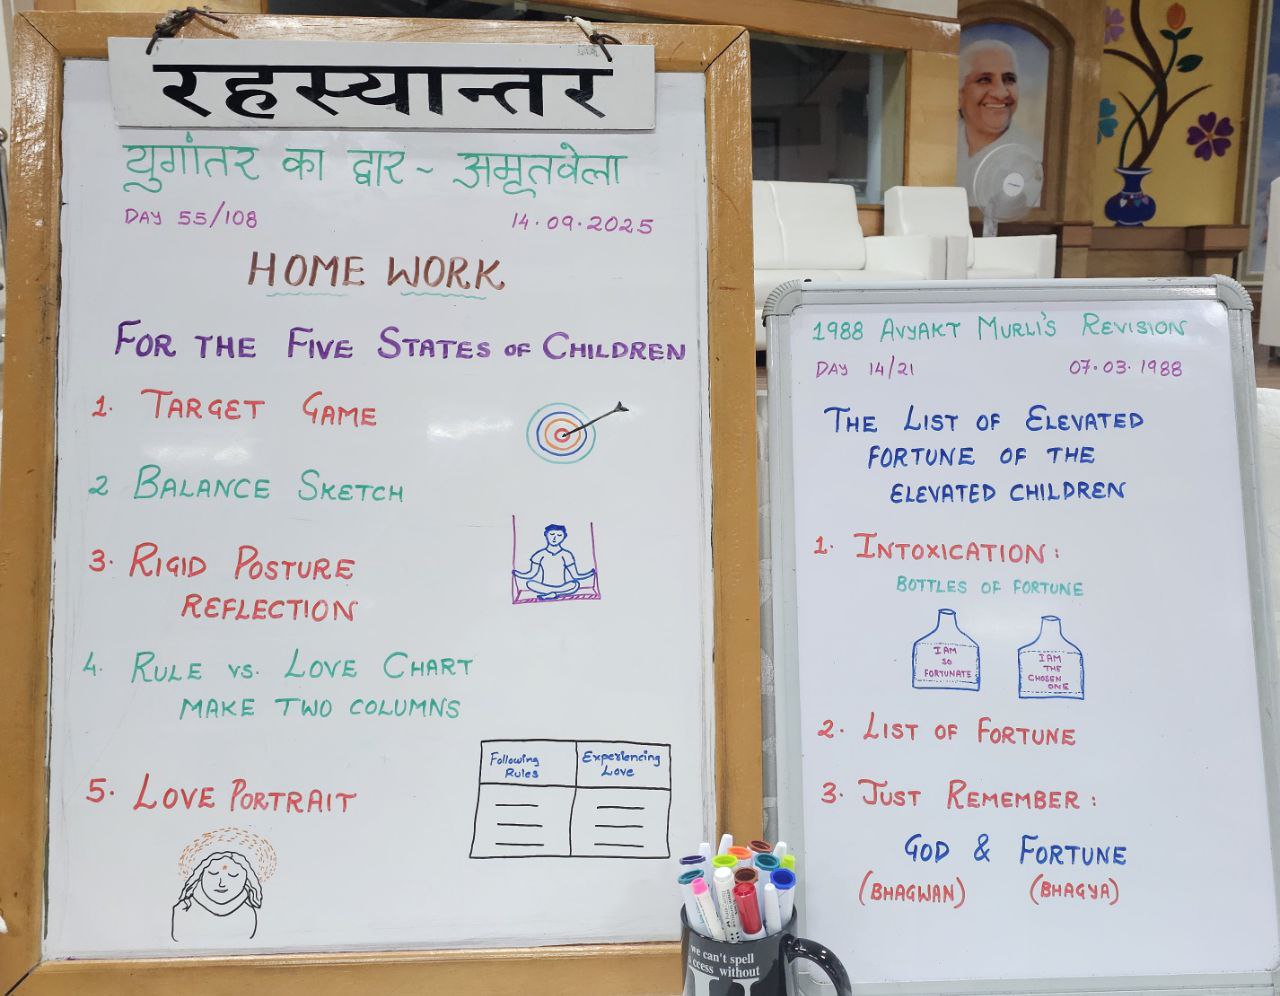 रहस्यान्तर
युगांतर का द्वार ~ अमृतवेला
DAY 55/108
14.09.2025
HOME WORK
FOR THE FIVE STATES OF CHILDREN
1. TARGET GAME
2 BALANCE SKETCH
3. RIGID POSTURE
REFLECTION
4. RULE VS. LOVE CHART
MAKE TWO COLUMNS
Following
Rules
Experiencing
Love
5. LOVE PORTRAIT
1988 AVYAKT MURLI'S REVISION
DAY 14/21
07.03.1988
THE LIST OF ELEVATED
FORTUNE OF THE
ELEVATED CHILDREN
1. INTOXICATION:
BOTTLES OF FORTUNE
I AM
SO
FORTUNATE
I AM
THE
CHOSEN
ONE
2. LIST OF FORTUNE
3. JUST REMEMBER:
GOD & FORTUNE
(BHAGWAN) (BHAGYA)
we can't spell
ccess without